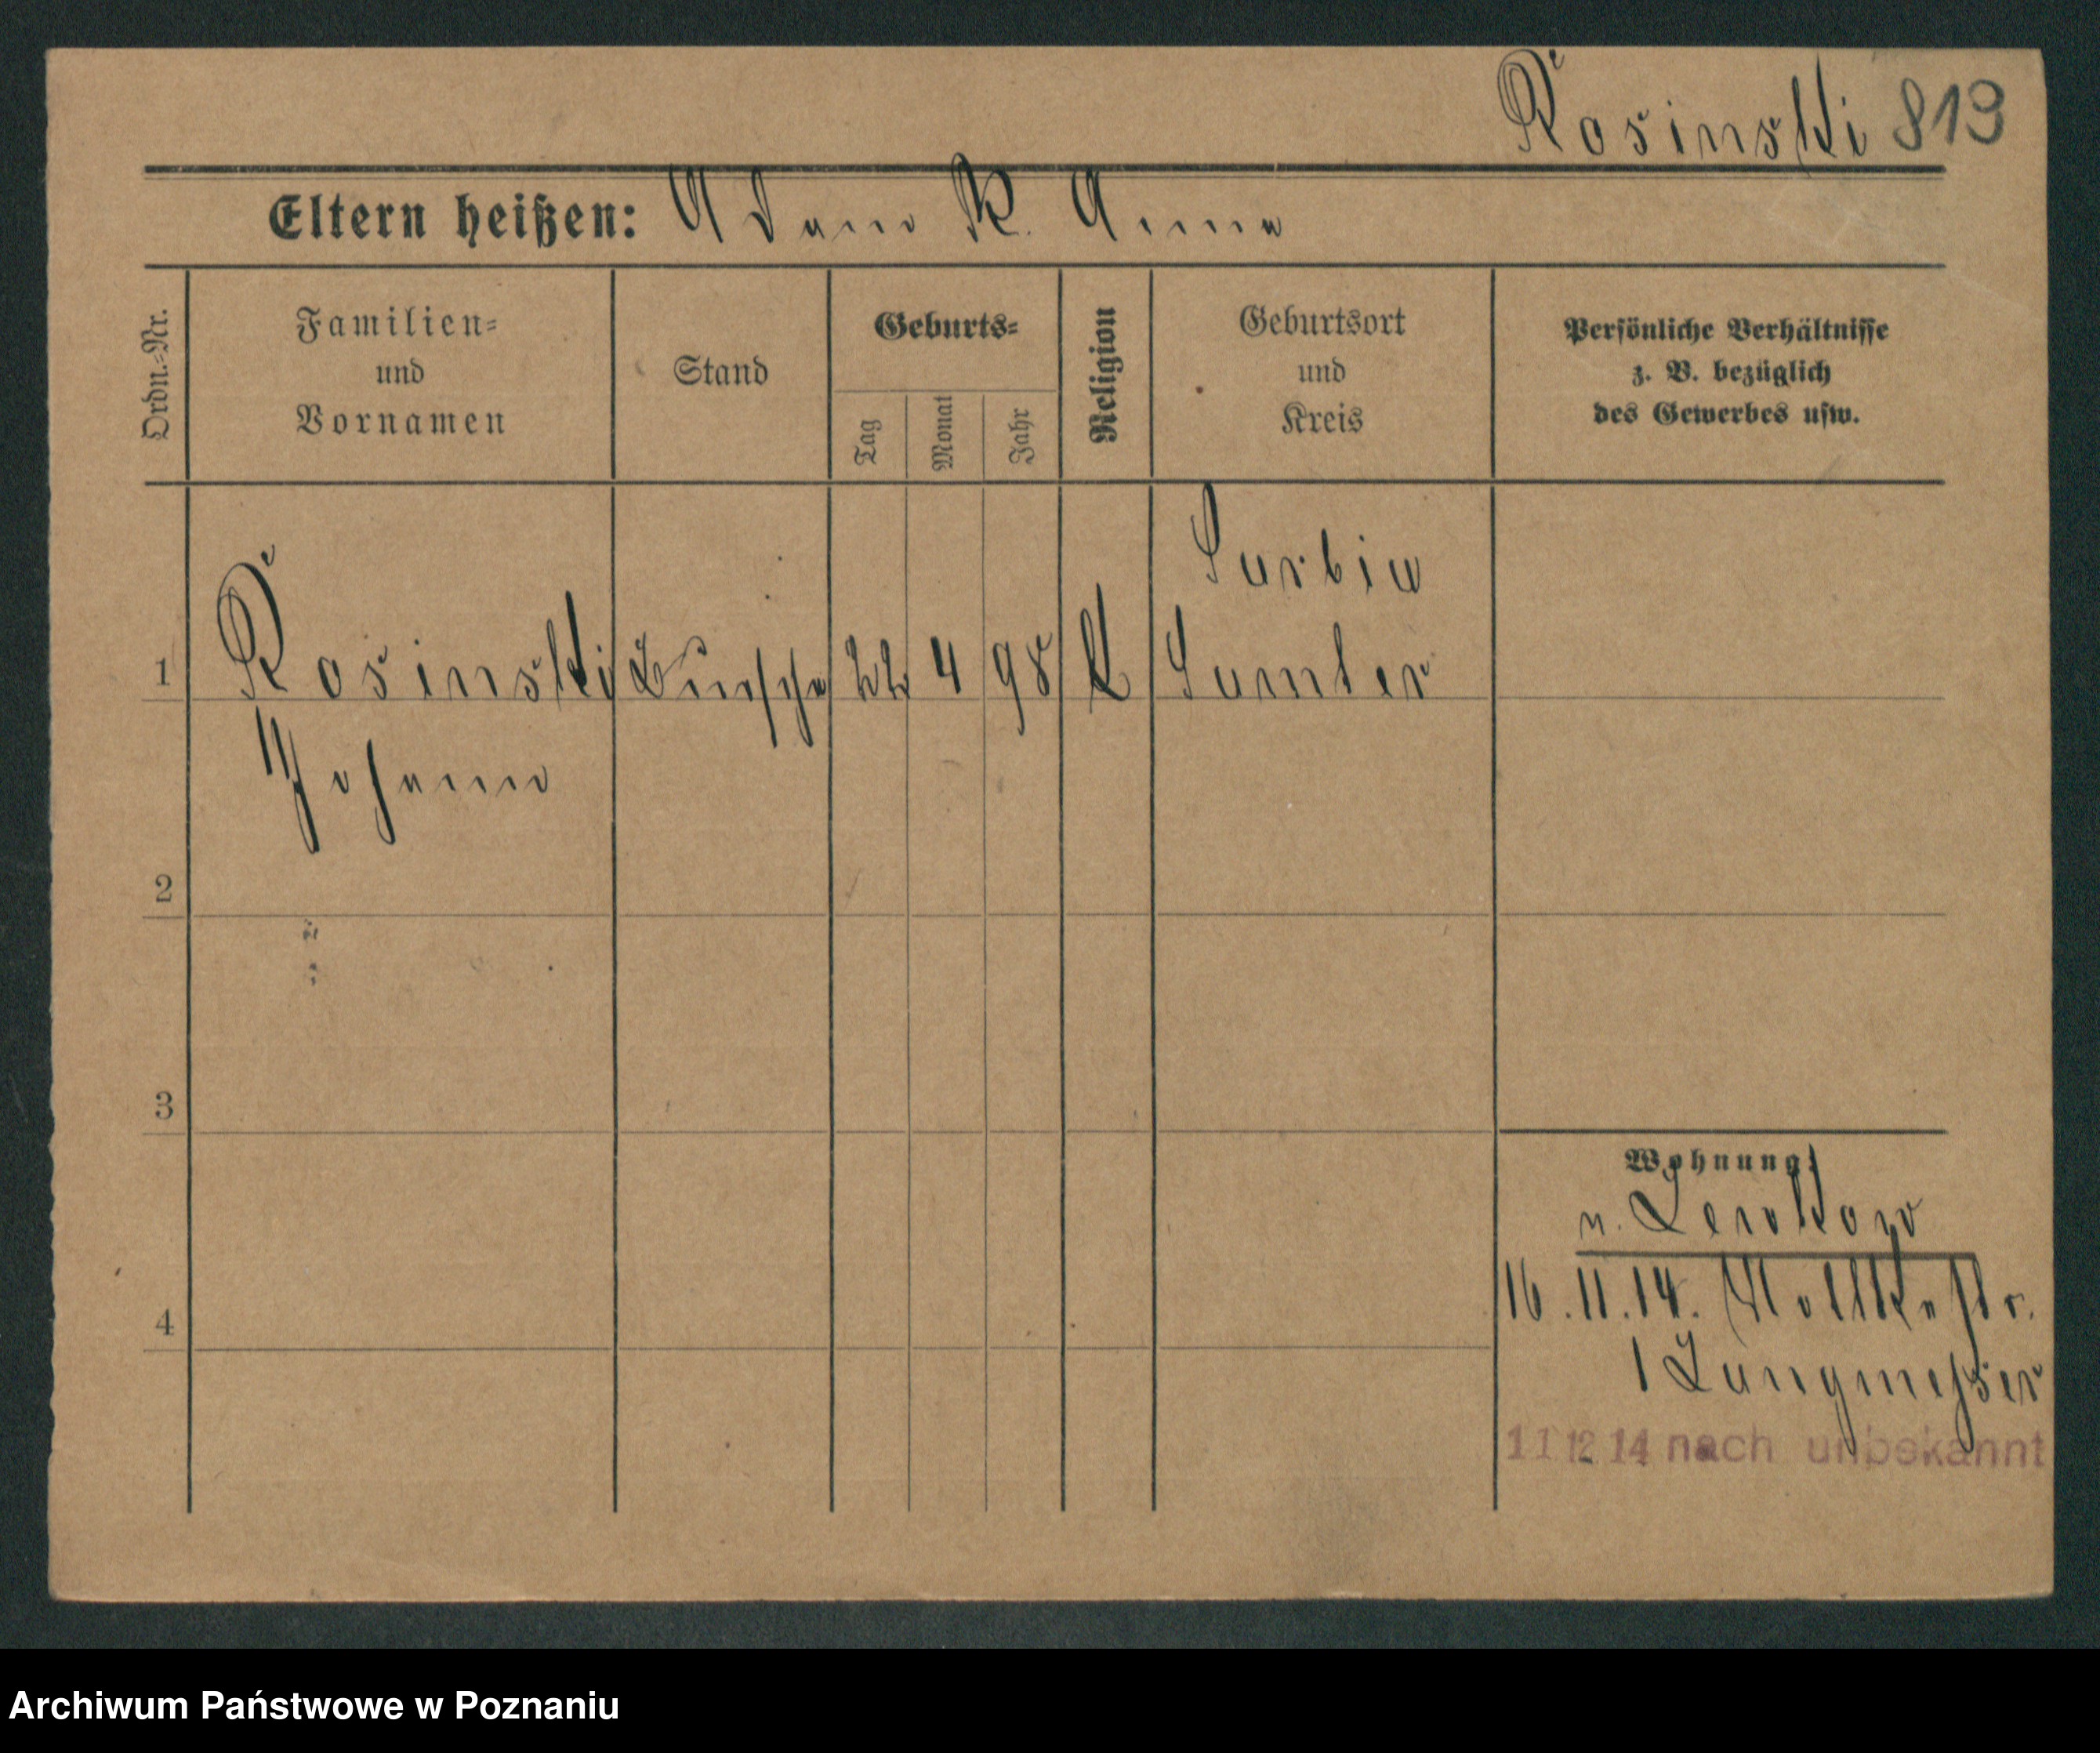 Rosinski 819
Eltern heißen: Adam R. Anna
Ordn.-Nr.
Familien-
und
Vornamen
Stand
Geburts-
Tag
Monat
Jahr
Religion
Geburtsort
und
Kreis
Persönliche Verhältnisse
z. B. bezüglich
des Gewerbes usw.
1
Rosinski Bursche 22 4 98 K
Samter
Johann
2
3
4
Wohnung:
16.11.14. Moltkestr.
1 Langmesser
11 12 14 nach unbekannt
Archiwum Państwowe w Poznaniu